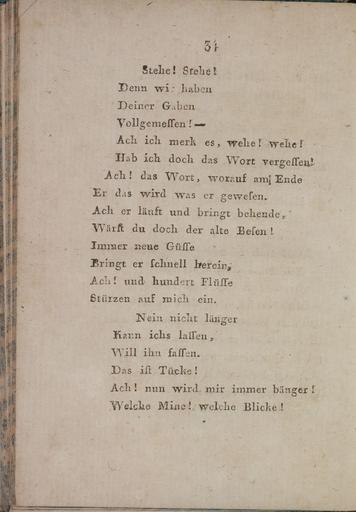 34
Stehe! Stehe!
Denn wir haben
Deiner Gaben
Vollgemeſſen! —
Ach ich merk es, wehe! wehe!
Hab ich doch das Wort vergeſſen!
Ach! das Wort, worauf am Ende
Er das wird was er geweſen.
Ach er läuft und bringt behende,
Wärſt du doch der alte Beſen!
Immer neue Güſſe
Bringt er ſchnell herein,
Ach! und hundert Flüſſe
Stürzen auf mich ein.
Nein nicht länger
Kann ichs laſſen,
Will ihn faſſen.
Das iſt Tücke!
Ach! nun wird mir immer bänger!
Welche Mine! welche Blicke!